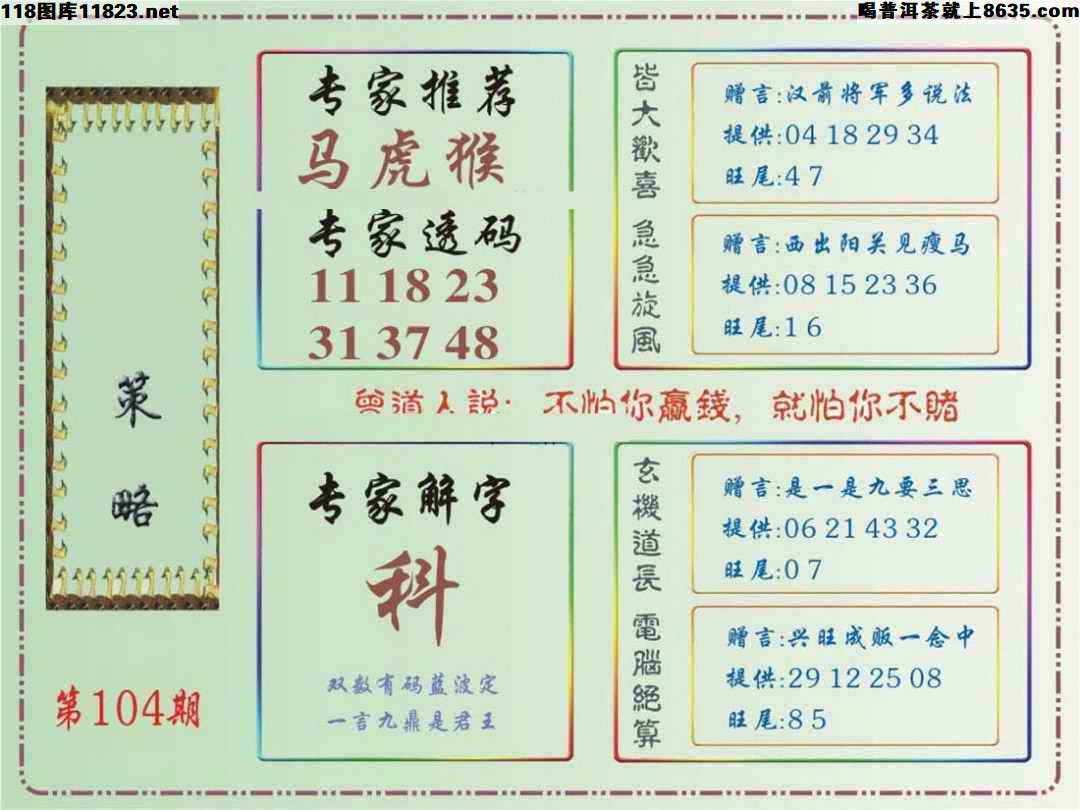 118图库11823.net
喝普洱茶就上8635.com
策略
第104期
专家推荐
马虎猴
专家透码
11 18 23
31 37 48
皆大歡喜
赠言:汉前将军多说法
提供:04 18 29 34
旺尾:4 7
急急旋風
赠言:西出阳关见瘦马
提供:08 15 23 36
旺尾:1 6
曾道人説: 不怕你赢錢, 就怕你不賭
专家解字
科
双数有码蓝波定
一言九鼎是君王
玄機道長
赠言:是一是九要三思
提供:06 21 43 32
旺尾:0 7
電腦絕算
赠言:兴旺成贩一念中
提供:29 12 25 08
旺尾:8 5